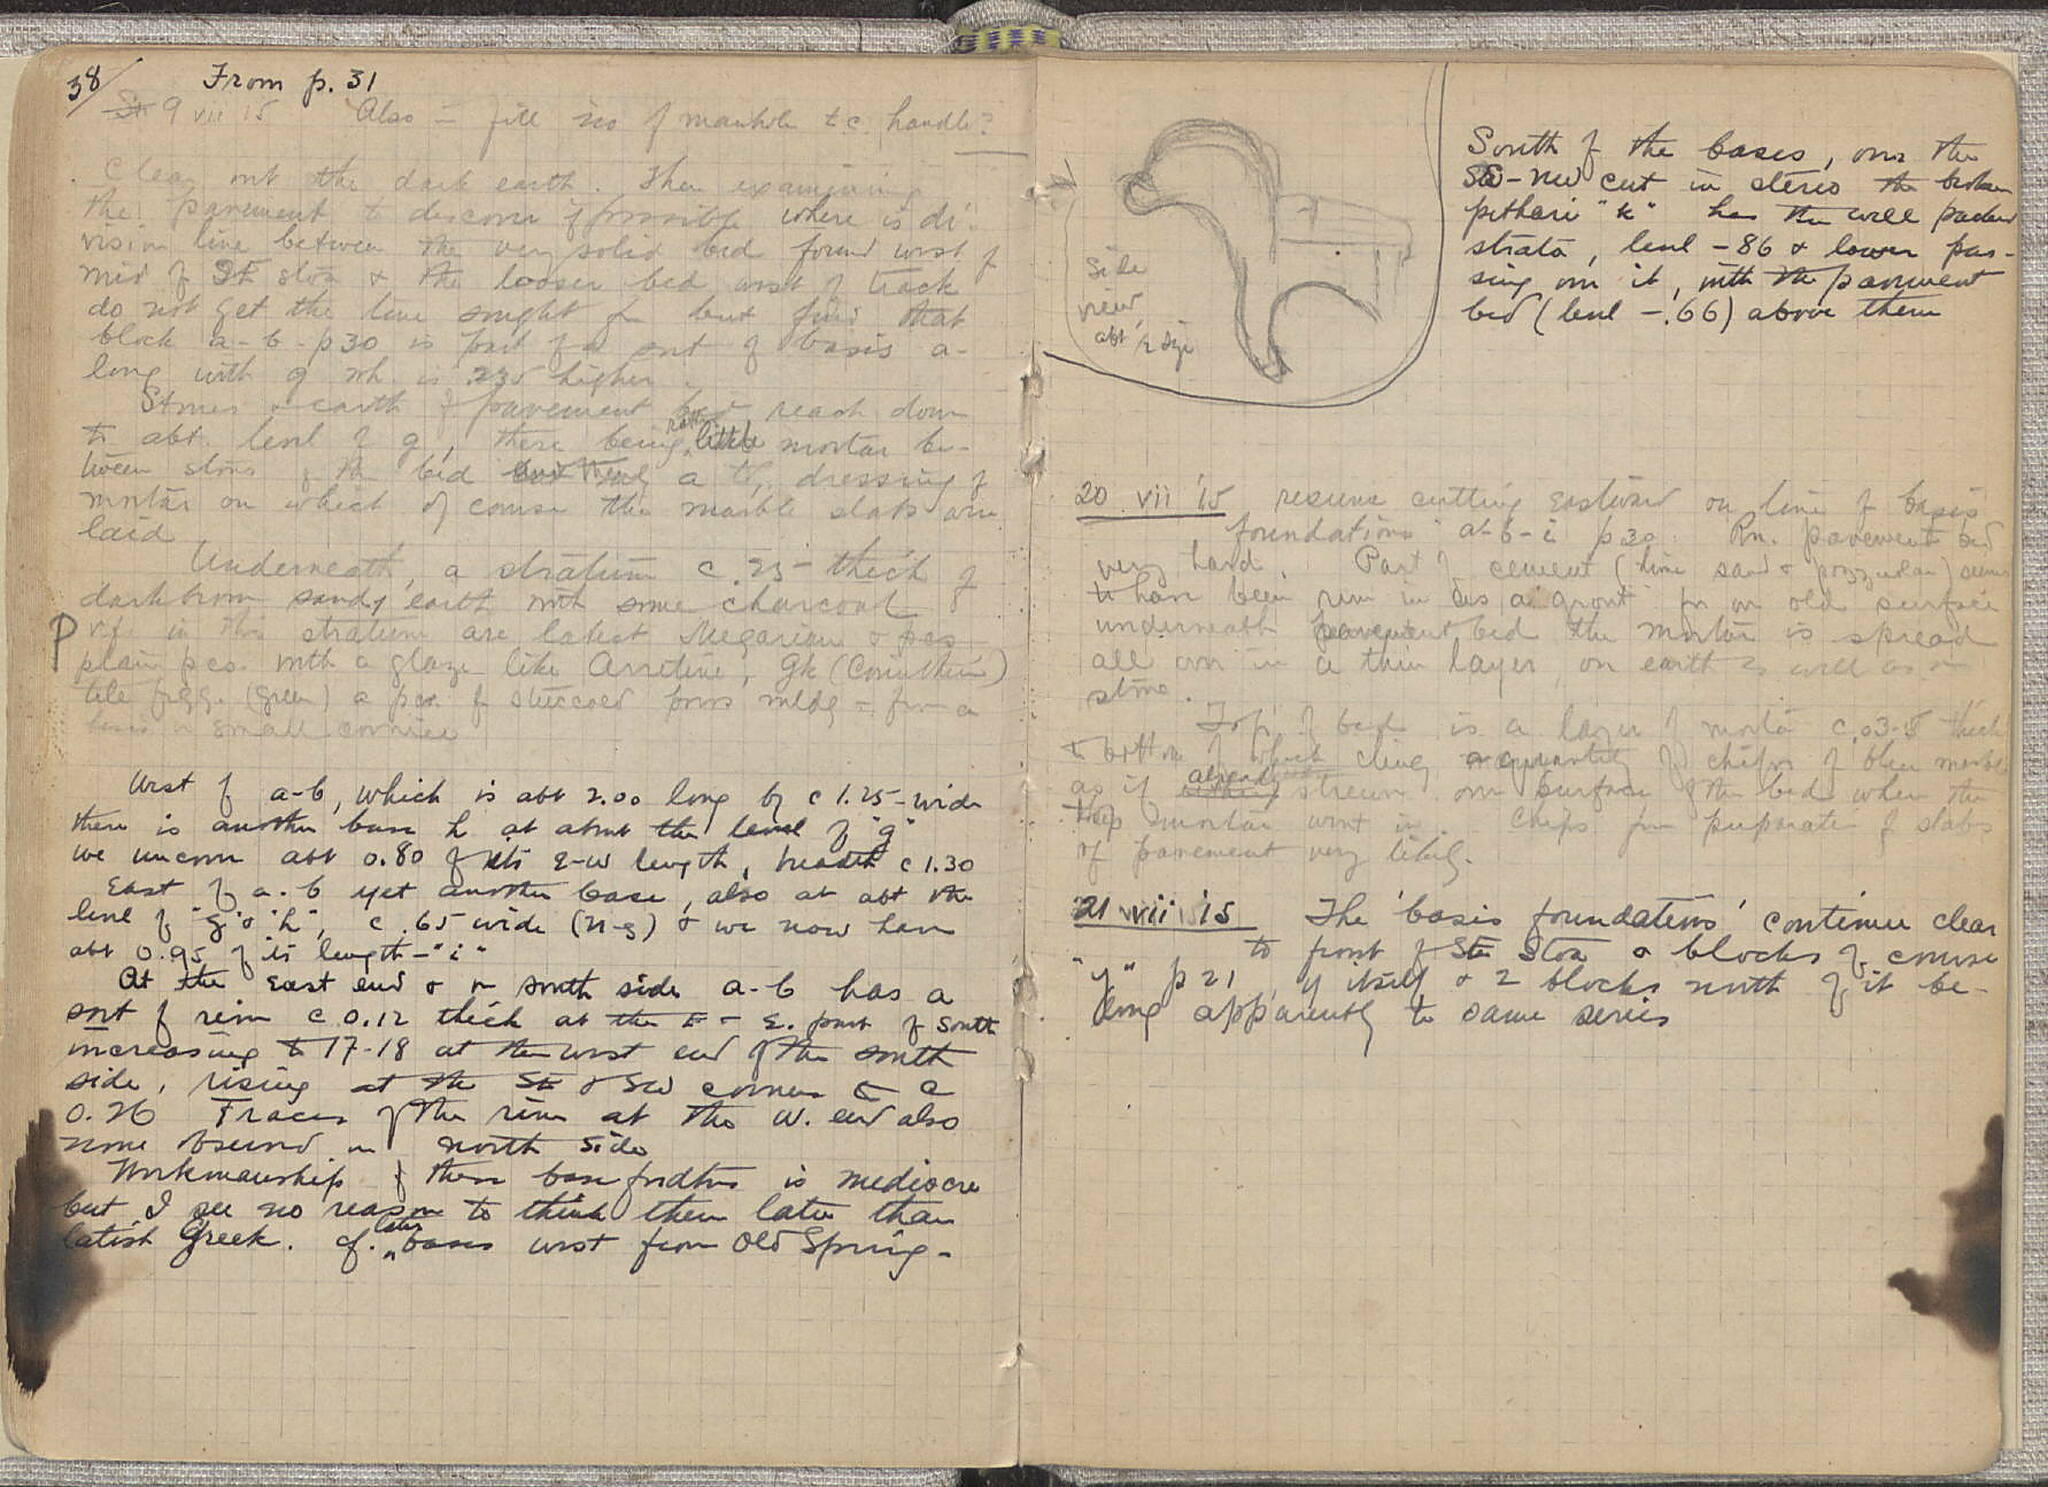 38/ From p. 31
9 vii 15 Also – fill no of manhole t c. handle?
Clear out the dark earth. Then examining
the pavement to discover if possible where is di-
vision line between the very solid bed found west of
mid of SE stoa & the looser bed west of track
do not get the line sought for but find that
block a-b-p30 is part of a sort of basis a-
long with g wh. is .235 higher.
Stones & earth of pavement bed reach down
to abt. level of g, there being rather little mortar be-
tween stones of the bed but only a dressing of
mortar on which of course the marble slabs are
laid
Underneath, a stratum c .25 thick of
dark brown sandy earth with some charcoal
P v.f. in this stratum are latest Megarian & pcs
plain pcs. with a glaze like Arretine, Gk (Corinthian)
tile frgg. (green) a pce. of stuccoed poros mldg – from a
basis or small cornice
West of a-b, which is abt 2.00 long by c 1.25 wide
there is another base h at about the level of "g"
we uncover abt 0.80 of its E-W length, breadth c 1.30
East of a-b yet another base, also at abt the
level of "g" & "h", c .65 wide (N-S) & we now have
abt 0.95 of its length – "i"
At the East end & on south side a-b has a
sort of rim c 0.12 thick at the E – E. part of South
increasing to 17-18 at the west end of the south
side, rising at the SE & SW corners to c
0.26 Traces of the rim at the W. end also
none observed on north side
Workmanship of these base fndtns is mediocre
but I see no reason to think them later than
latish Greek. cf. later bases west from Old Spring-
side
view
abt 1/2 size
South of the bases, over the
SE-NW cut in stereo the broken
pithari "k" has the well packed
strata, level -86 & lower pas-
sing over it, with the pavement
bed (level -.66) above them
20 vii '15 resume cutting Eastward on line of basis
foundations a-b-i p30. Rn. pavement bed
very hard. Part of cement (lime sand & pozzuolan) seems
to have been run in as a 'grout' for on old surface
underneath pavement bed the mortar is spread
all over in a thin layer, on earth as well as on
stone.
Top of bed is a layer of mortar c .03-5 thick
to bottom of which cling a quantity of chips of blue marble
as if already strewn over surface of the bed when the
top mortar went in. Chips from preparation of slabs
of pavement very likely.
21 vii '15 The 'basis foundations' continue clear
to front of SE Stoa & blocks of course
"y" p21, y itself & 2 blocks north of it be-
long apparently to same series